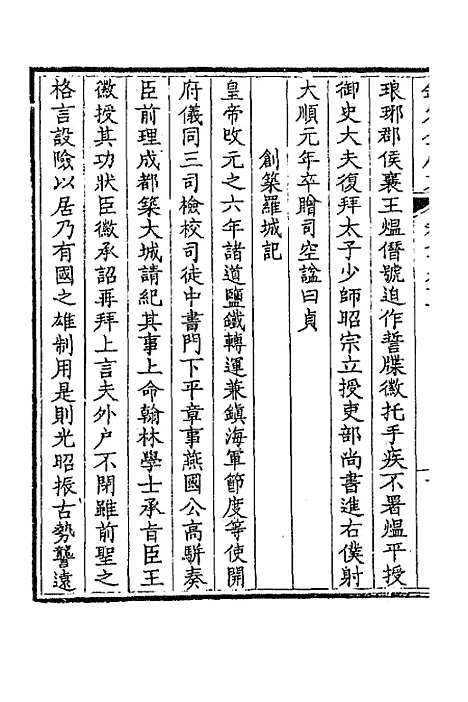 琅琊郡侯襄王熅僭號迫作誓牒徽托手疾不署熅平授
御史大夫復拜太子少師昭宗立授吏部尚書進右僕射
大順元年卒贈司空諡曰貞
創築羅城記
皇帝改元之六年諸道鹽鐵轉運兼鎮海軍節度等使開
府儀同三司檢校司徒中書門下平章事燕國公高駢奏
臣前理成都築大城請紀其事上命翰林學士承旨臣王
徽授其功狀臣徽承詔再拜上言夫外户不閉雖前聖之
格言設險以居乃有國之雄制用是則光昭振古勢讋遠